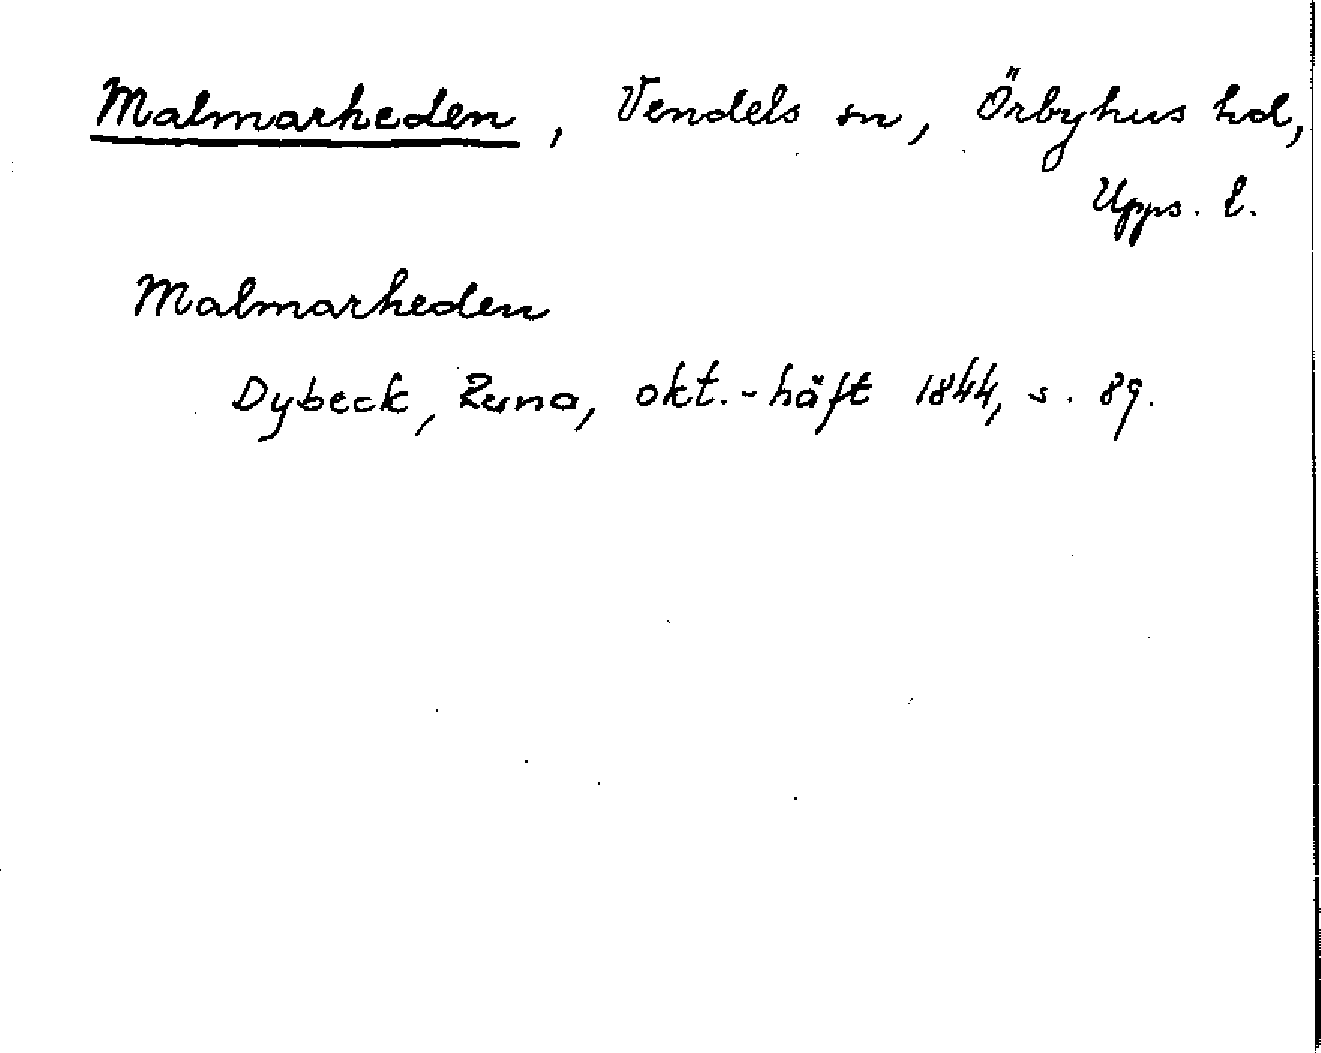 Malmarheden, Vendels sn, Örbyhus hd,
Upps. l.
Malmarheden
Dybeck, Runa, okt.-häft 1844, s. 89.